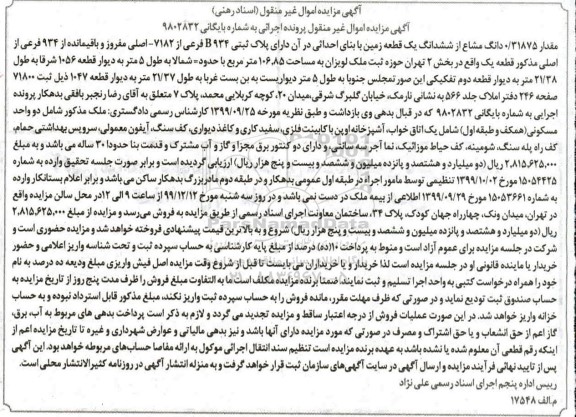 آگهی مزایده اموال غیر منقول (اسناد رهنی)
آگهی مزایده اموال غیر منقول پرونده اجرائی به شماره بایگانی ۹۸۰۲۸۳۲
مقدار ۰/۳۱۸۷۵ دانگ مشاع از ششدانگ یک قطعه زمین با بنای احداثی در آن دارای پلاک ثبتی ۹۳۴ B فرعی از ۷۱۸۲- اصلی مفروز و باقیمانده از ۹۳۴ فرعی از
اصلی مذکور قطعه یک واقع در بخش ۲ تهران حوزه ثبت ملک لویزان به مساحت ۱۰۶،۸۵ متر مربع با حدود: شمالا به طول ۵ متر به دیوار قطعه ۱۰۵۶ شرقا به طول
۲۱/۳۸ متر به دیوار قطعه دوم تفکیکی این صورتمجلس جنوبا به طول ۵ متر دیواریست به بن بست غربا به طول ۲۱/۳۷ متر به دیوار قطعه ۱۰۴۷ ذیل ثبت ۷۱۸۰۰
صفحه ۲۴۶ دفتر املاک جلد ۵۶۶ به نشانی نارمک، خیابان گلبرگ شرقی، میدان ۲۰، کوچه کربلایی محمد، پلاک ۷ متعلق به آقای رضا رنجبر بافقی بدهکار پرونده
اجرایی به شماره بایگانی ۹۸۰۲۸۳۲ که در قبال بدهی وی بازداشت و طبق نظریه مورخه ۱۳۹۹/۰۹/۲۵ کارشناس رسمی دادگستری: ملک مذکور شامل دو واحد
مسکونی(همکف و طبقه اول) شامل یک اتاق خواب، آشپزخانه اوپن با کابینت فلزی، سفید کاری و کاغذ دیواری، کف سنگ، آیفون معمولی، سرویس بهداشتی حمام،
کف راه پله سنگ، شومینه، کف حیاط موزائیک، نما آجر سه سانتی، و دارای دو کنتور برق مجزا و گاز و آب مشترک و قدمت بنا حدودا ۳۰ ساله می باشد و به مبلغ
۲،۸۱۵،۶۲۵،۰۰۰ ریال (دو میلیارد و هشتصد و پانزده میلیون و ششصد و بیست و پنج هزار ریال) ارزیابی گردیده است و برابر صورت جلسه تحقیق وارده به شماره
۱۵۰۵۴۴۲۵ مورخ ۱۳۹۹/۱۰/۰۲ تنظیمی توسط مامور اجراء در طبقه اول عمومی بدهکار و در طبقه دوم مادربزرگ بدهکار ساکن می باشد و برابر اعلام بستانکار وارده
به شماره ۱۵۰۵۳۶۶۱ مورخ ۱۳۹۹/۰۹/۲۹ اطلاعی از بیمه ملک در دست نمی باشد و در روز سه شنبه مورخ ۹۹/۱۲/۱۲ از ساعت ۹ الی ۱۲ در محل سالن مزایده واقع
در تهران، میدان ونک، چهارراه جهان کودک، پلاک ۳۴، ساختمان معاونت اجرای اسناد رسمی از طریق مزایده به فروش می رسد و مزایده از مبلغ ۲،۸۱۵،۶۲۵،۰۰۰
ریال (دو میلیارد و هشتصد و پانزده میلیون و ششصد و بیست و پنج هزار ریال) شروع و به بالاترین قیمت پیشنهادی فروخته خواهد شد و مزایده حضوری است و
شرکت در جلسه مزایده برای عموم آزاد است و منوط به پرداخت ۱۰(ده) درصد از مبلغ پایه کارشناسی به حساب سپرده ثبت و تحت شناسه واریز اعلامی و حضور
خریدار یا نماینده قانونی او در جلسه مزایده است لذا خریدار و یا خریداران می بایست تا قبل از شروع وقت مزایده اصل فیش واریزی مبلغ ودیعه ده درصد به نام
خود را همراه درخواست کتبی به واحد اجرا تسلیم و ثبت نمایند. ضمنا برنده مزایده مکلف است ما به التفاوت مبلغ فروش را ظرف مدت پنج روز از تاریخ مزایده به
حساب صندوق ثبت تودیع نماید و در صورتی که ظرف مهلت مقرر، مانده فروش را به حساب سپرده ثبت واریز نکند، مبلغ مذکور قابل استرداد نبوده و به حساب
خزانه واریز خواهد شد. در این صورت عملیات فروش از درجه اعتبار ساقط و مزایده تجدید می گردد و لازم به ذکر است پرداخت بدهی های مربوط به آب، برق،
گاز اعم از حق انشعاب و یا حق اشتراک و مصرف در صورتی که مورد مزایده دارای آنها باشد و نیز بدهی مالیاتی و عوارض شهرداری و غیره تا تاریخ مزایده اعم از
اینکه رقم قطعی آن معلوم شده یا نشده باشد به عهده برنده مزایده است تنظیم سند انتقال اجرائی موکول به ارائه مفاصا حساب‌های مربوطه خواهد بود. این آگهی
پس از تایید نهائی فرآیند مزایده و ارسال آگهی در سایت آگهی‌های سازمان ثبت قرار خواهد گرفت و به منزله انتشار آگهی در روزنامه کثیرالانتشار محلی است.
رییس اداره پنجم اجرای اسناد رسمی علی نژاد
م.الف ۱۷۵۴۸